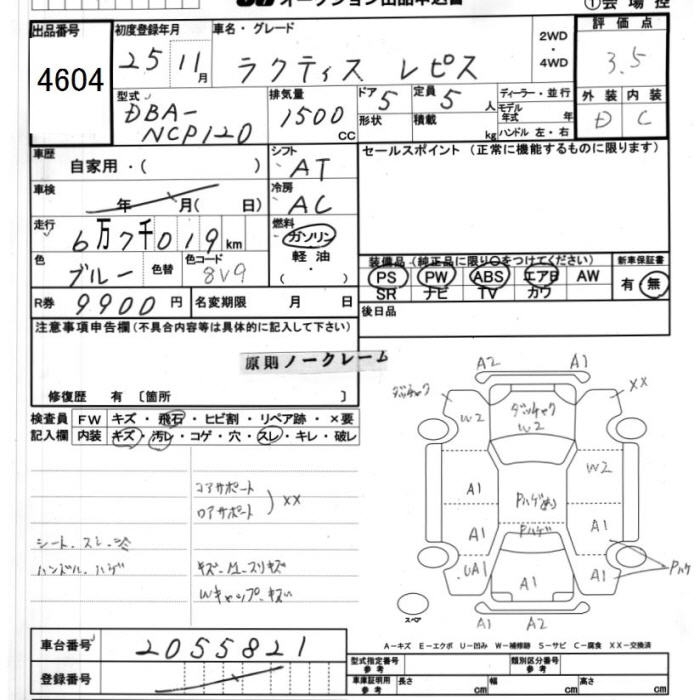 オークション出品申込書
①会場控
出品番号
4604
初度登録年月
25 11月
車名・グレード
ラクティス レピス
2WD
・
4WD
評価点
3.5
外装 内装
D C
型式
DBA-
NCP120
排気量
1500
CC
ドア 5
形状
定員 5 人
積載 kg
ディーラー・並行
モデル
年式 年
ハンドル 左・右
車歴
自家用・( )
シフト
AT
セールスポイント (正常に機能するものに限ります)
車検
年 月( 日)
冷房
AC
走行
6万7千019km
燃料
ガソリン
軽油
( ・ )
色
ブルー
色替
色コード
8V9
装備品 (純正品に限り○をつけてください)
PS PW ABS エアB AW
SR ナビ TV カワ
新車保証書
有・無
R券
9900円
名変期限 月 日
後日品
注意事項申告欄(不具合内容等は具体的に記入して下さい)
原則ノークレーム
修復歴 有 〔箇所 〕
検査員
記入欄
FW キズ・飛石・ヒビ割・リペア跡・×要
内装 キズ・汚レ・コゲ・穴・スレ・キレ・破レ
コアサポート
ロアサポート
XX
シート、スレ、
ハンドル、ハゲ
Wキャップ、キズ
A2 A1
XX
W2
W2
W2
A1
Pハゲあり
Pハゲ
A1
A1
A1
UA1
A1
A1
Pハゲ
スペア
A1 A2
A-キズ E-エクボ U-凹み W-補修跡 S-サビ C-腐食 XX-交換済
車台番号
2055821
登録番号
型式指定番号
参考
類別区分番号
参考
車庫証明用
参考
長さ cm
幅 cm
高さ cm